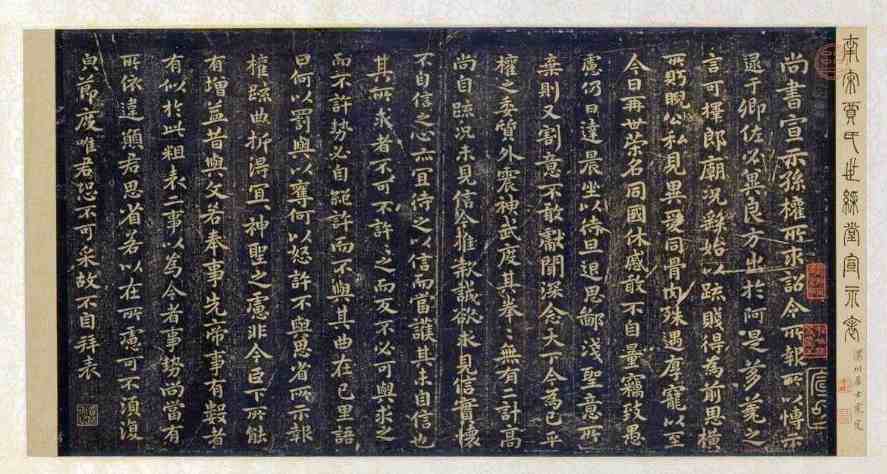 南宋賈氏世綵堂宣示表
尚書宣示孫權所求詔令所報所以博示
逮于卿佐必冀良方出於阿是芻蕘之
言可擇郎廟況繇始以疏賤得為前恩橫
所盱睨公私見異愛同骨肉殊遇厚寵以至
今日再世榮名同國休慼敢不自量竊致愚
慮仍日達晨坐以待旦退思鄙淺聖意所
棄則又割意不敢獻聞深念天下今為已平
權之委質外震神武度其拳〻無有二計高
尚自疏況未見信今推款誠欲求見信實懷
不自信之心亦宜待之以信而當護其未自信也
其所求者不可不許〻之而反不必可與求之
而不許勢必自絕許而不與其曲在己里語
曰何以罰與以奪何以怒許不與思省所示報
權疏曲折得宜〻神聖之慮非今臣下所能
有增益昔與文若奉事先帝事有數者
有似於此粗表二事以為今者事勢尚當有
所依違願君思省若以在所慮可不須復
節度唯君恐不可采故不自拜表